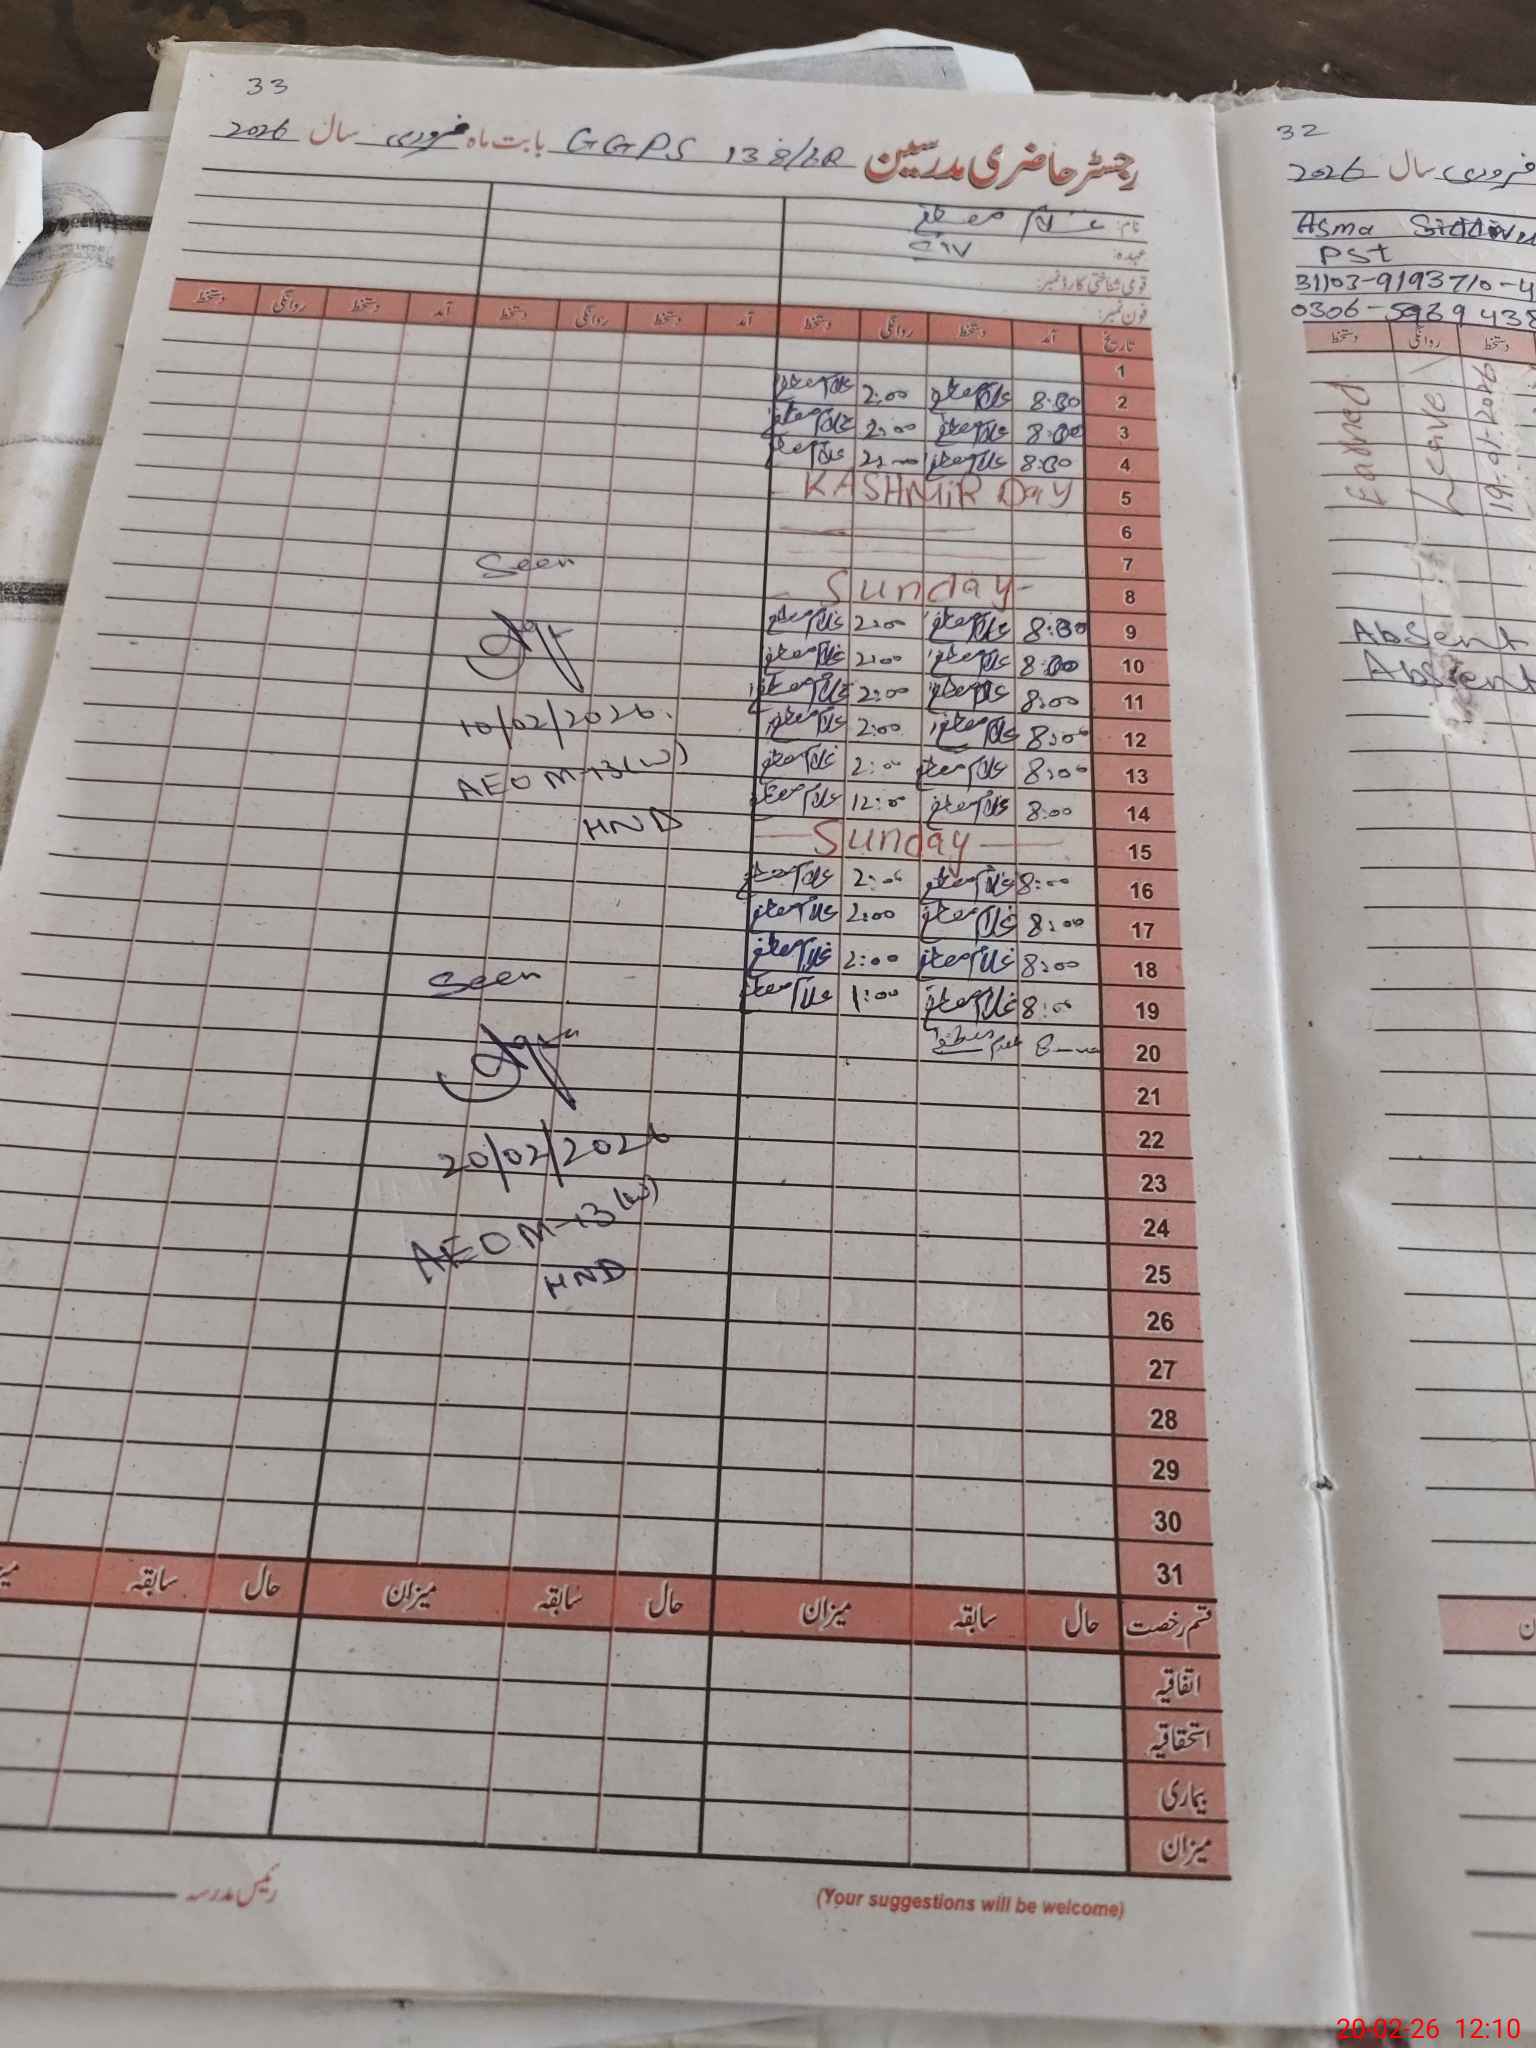 33
رجسٹر حاضری مدرسین GGPS 138/6R بابت ماہ فروری سال 2026
نام: غلام مصطفی
عہدہ: C-IV
قومی شناختی کارڈ نمبر:
فون نمبر:
تاریخ آمد دستخط روانگی دستخط آمد دستخط روانگی دستخط آمد دستخط روانگی دستخط
1
2 8:30 غلام مصطفی 2:00 غلام مصطفی
3 8:00 غلام مصطفی 2:00 غلام مصطفی
4 8:30 غلام مصطفی 2:00 غلام مصطفی
5 KASHMIR Day
6
7
8 Sunday
9 8:30 غلام مصطفی 2:00 غلام مصطفی
10 8:00 غلام مصطفی 2:00 غلام مصطفی
11 8:00 غلام مصطفی 2:00 غلام مصطفی
12 8:00 غلام مصطفی 2:00 غلام مصطفی
13 8:00 غلام مصطفی 2:00 غلام مصطفی
14 8:00 غلام مصطفی 12:00 غلام مصطفی
15 Sunday
16 8:00 غلام مصطفی 2:00 غلام مصطفی
17 8:00 غلام مصطفی 2:00 غلام مصطفی
18 8:00 غلام مصطفی 2:00 غلام مصطفی
19 8:00 غلام مصطفی 1:00 غلام مصطفی
20 غلام مصطفی
21
22
23
24
25
26
27
28
29
30
31
Seen
10/02/2026.
AEO M-13(w)
HND
Seen
20/02/2026
AEO M-13(w)
HND
قسم رخصت حال سابقہ میزان حال سابقہ میزان حال سابقہ
اتفاقیہ
استحقاقیہ
بیماری
میزان
(Your suggestions will be welcome)
رئیس مدرسہ
32
فروری سال 2026
Asma
PST
31103-9193710-4
0306-5939438
دستخط روانگی دستخط
Earned
Leave
19-01-2026
Absent
Absent
20-02-26 12:10